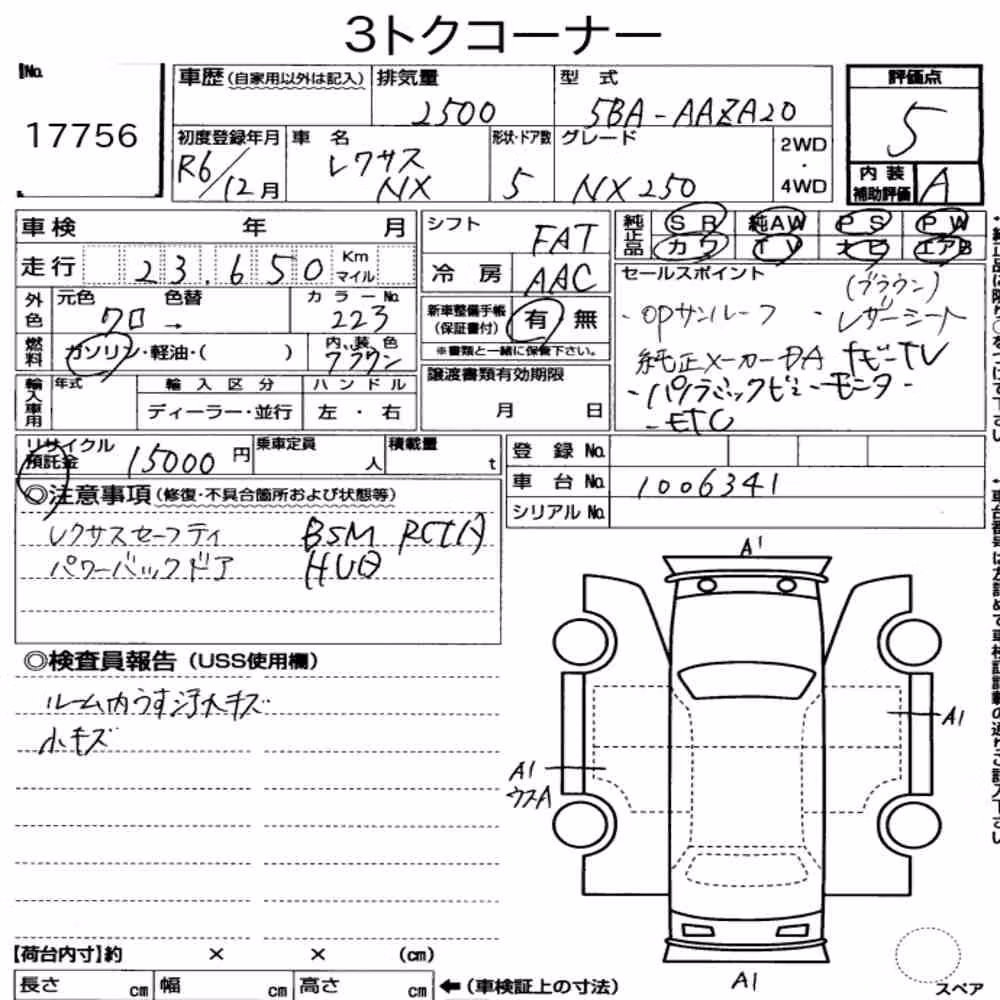 3トクコーナー
No.
17756
車歴(自家用以外は記入)
排気量
2500
型 式
5BA-AAZA20
評価点
5
初度登録年月
R6/12月
車 名
レクサス
NX
形状・ドア数
5
グレード
NX250
2WD
・
4WD
内装
補助評価
A
車検 年 月
走行 23.650 Km
マイル
シフト
FAT
冷房
AAC
純正品
SR 純AW PS PW
カワ TV ナビ エアB
外色
元色 色替
クロ →
カラーNo.
223
燃料
ガソリン・軽油・( )
内装色
ブラウン
新車整備手帳
(保証書付)
有 無
※書類と一緒に保管下さい。
セールスポイント
(ブラウン)
・OPサンルーフ ・レザーシート
純正メーカーDA ナビーTV
・パノラミックビューモニター
・ETC
輸入車用
年式
輸入区分
ハンドル
ディーラー・並行
左・右
譲渡書類有効期限
月 日
リサイクル
預託金
15000円
乗車定員
人
積載量
t
登録No.
車台No.
1006341
シリアルNo.
◎注意事項(修復・不具合箇所および状態等)
レクサスセーフティ BSM RCTA
パワーバックドア HUD
◎検査員報告(USS使用欄)
ルーム内うす汚れキズ
小キズ
A1
A1
A1
ウスA
A1
【荷台内寸】約 × × (cm)
長さ cm
幅 cm
高さ cm
←(車検証上の寸法)
スペア